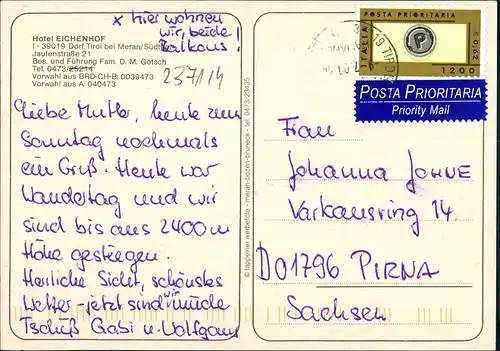 x hier wohnen
wir, beide!
Balkons!
Hotel EICHENHOF
I - 39019 Dorf Tirol bei Meran/Südt
Jaufenstraße 21
Bes. und Führung Fam. D. M. Götsch
Tel. 0473/25214
Vorwahl aus BRD-CH-B: 0039473
Vorwahl aus A: 040473
237114
Liebe Mutter, heute zum
Sonntag nochmals
ein Gruß. Heute war
Wandertag und wir
sind bis aus 2400 m
Höhe gestiegen.
Herrliche Sicht, schönstes
Wetter - jetzt sind wir müde
Tschüß Gabi u. Wolfgang
© tappeiner werbefoto - meran-bozen-bruneck - tel. 0473/23435
POSTA PRIORITARIA
ITALIA
P
€ 0,62
1200
19 TIROL
POSTA PRIORITARIA
Priority Mail
Frau
Johanna JOHNE
Varkausring 14
D01796 PIRNA
Sachsen